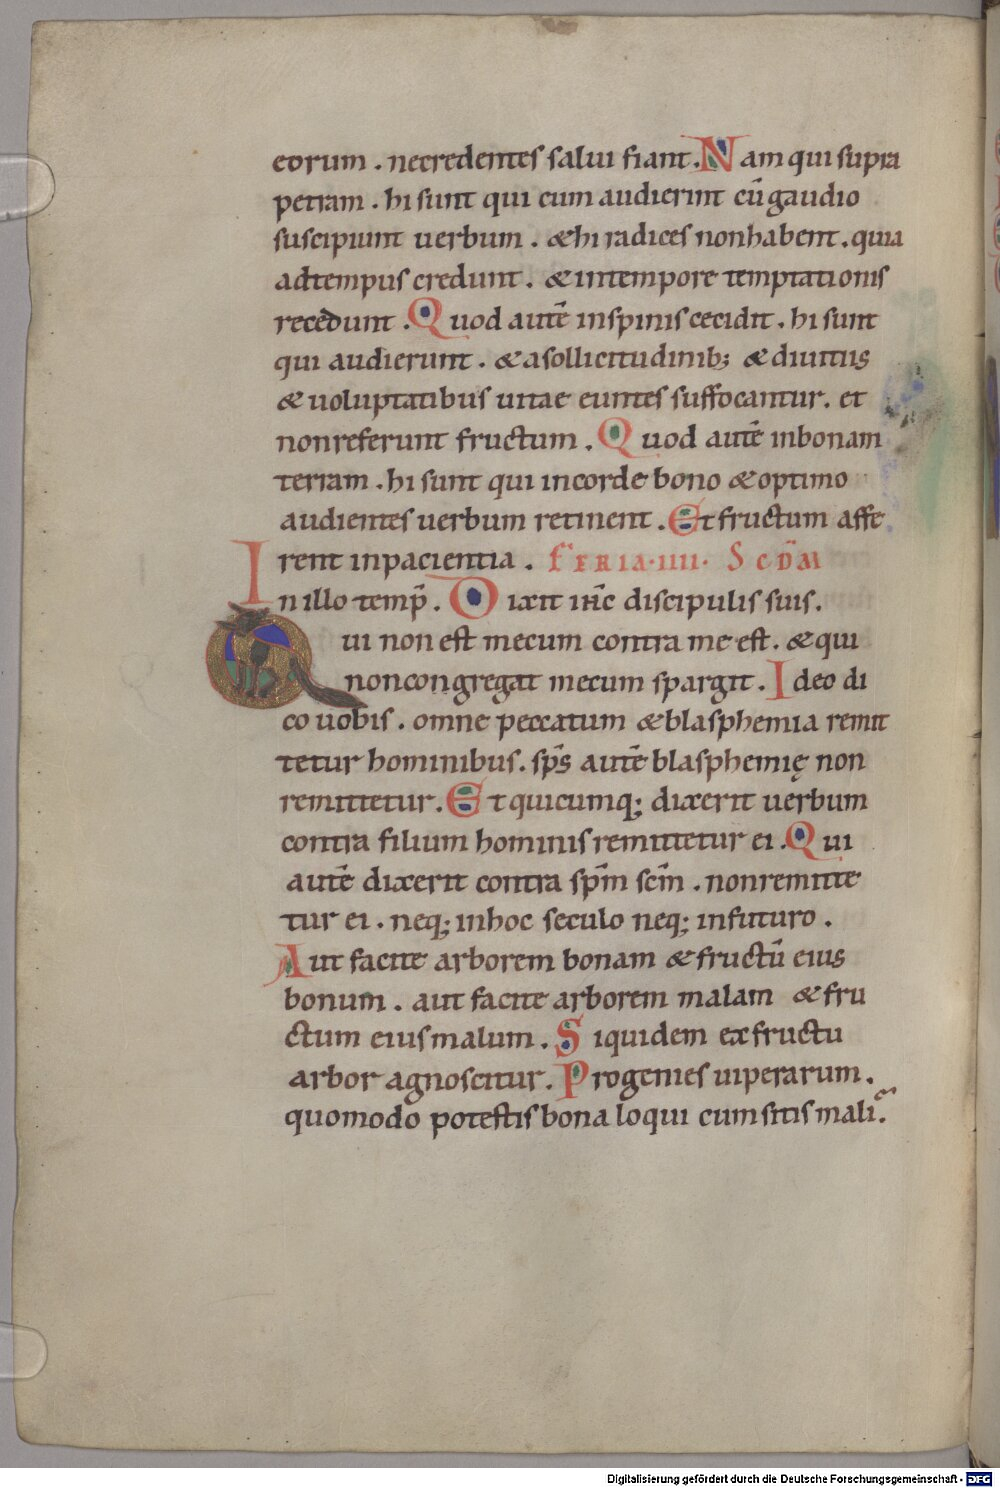 eorum . necredentes salui fiant . Nam qui supra
petram . hi sunt qui cum audierint cū gaudio
suscipiunt uerbum . & hi radices nonhabent . quia
adtempus credunt . & intempore temptationis
recedunt . Quod autē inspinis cecidit . hi sunt
qui audierunt . & asollicitudinib; & diuitiis
& uoluptatibus uitae euntes suffocantur . et
nonreferunt fructum . Quod autē inbonam
terram . hi sunt qui incorde bono & optimo
audientes uerbum retinent . Et fructum affe
rent inpacientia . FERIA · IIII · SCDM
In illo temp̄ . Dixit ih̄c discipulis suis .
Qui non est mecum contra me est . & qui
noncongregat mecum spargit . Ideo di
co uobis . omne peccatum & blasphemia remit
tetur hominibus . sp̄s autē blasphemię non
remittetur . Et quicumq; dixerit uerbum
contra filium hominis remittetur ei . Qui
autē dixerit contra sp̄m sc̄m . nonremitte
tur ei . neq; inhoc seculo neq; infuturo .
Aut facite arborem bonam & fructū eius
bonum . aut facite arborem malam & fru
ctum eius malum . Siquidem ex fructu
arbor agnoscitur . Progenies uiperarum .
quomodo potestis bona loqui cum sitis mali ?
Digitalisierung gefördert durch die Deutsche Forschungsgemeinschaft - DFG